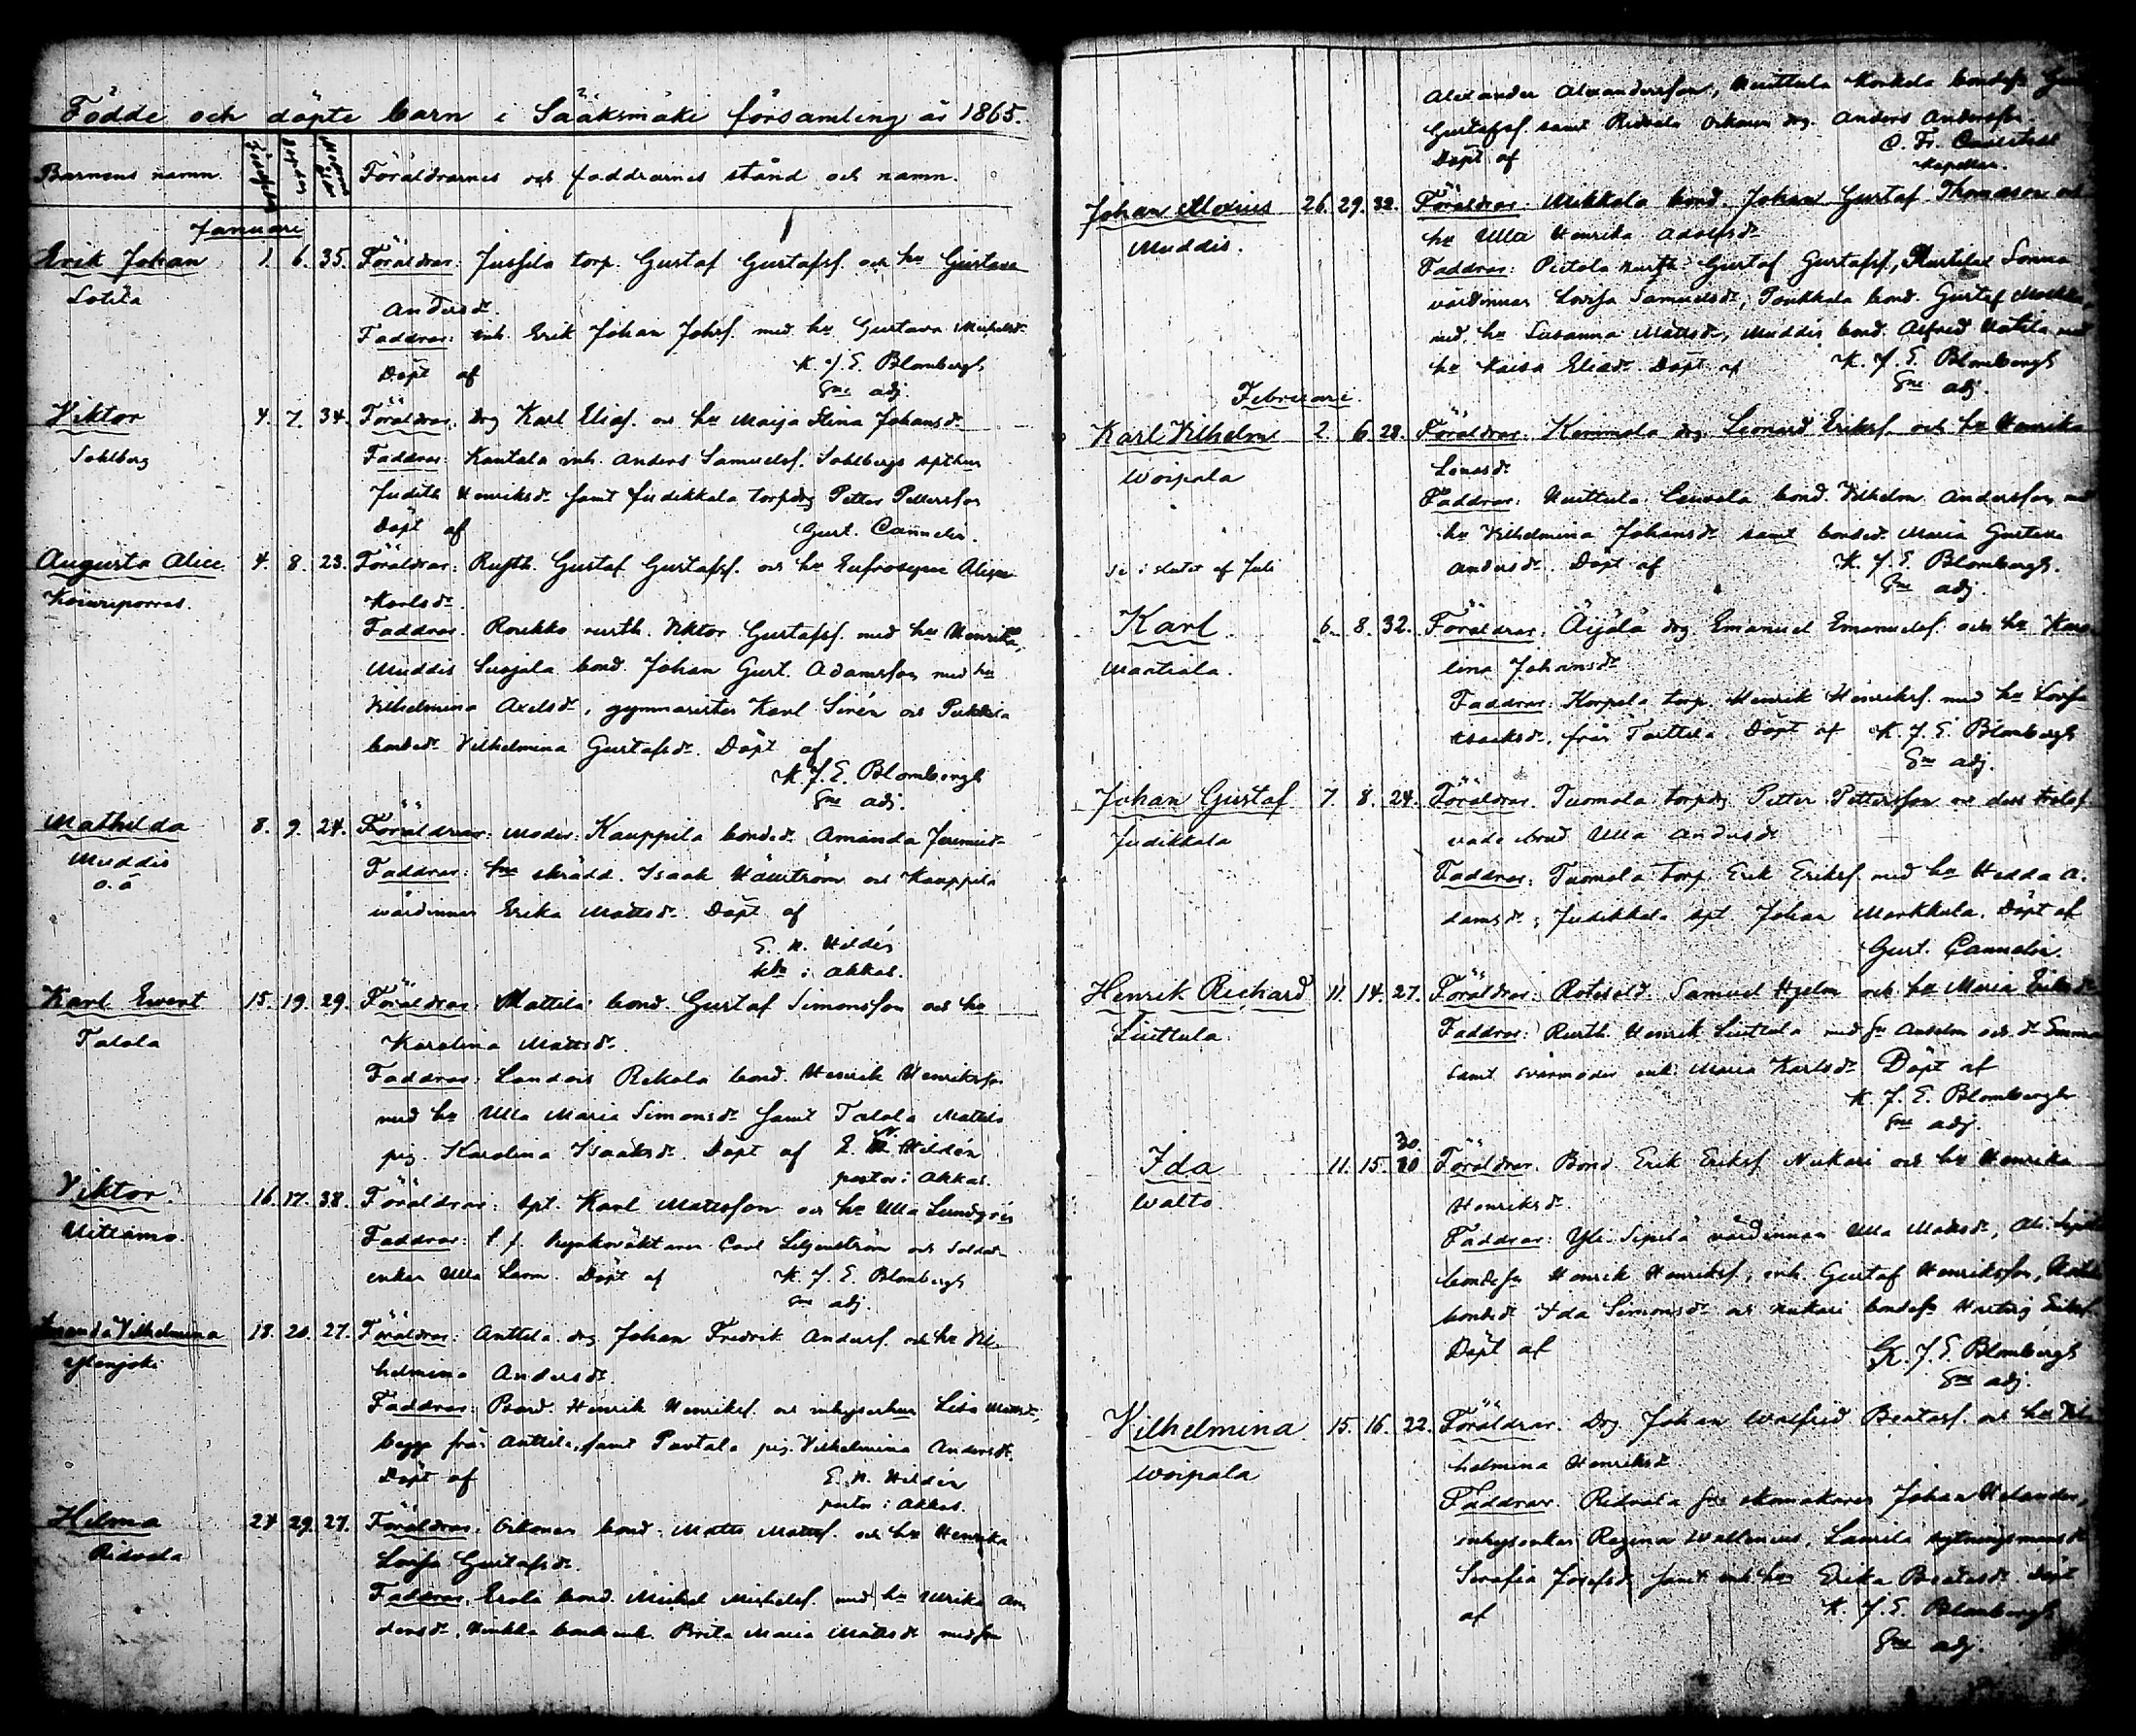 Födde och döpte barn i Sääksmäki församling år 1865.
Barnens namn. Födelsedag Dopdag Föräldrarnes och faddrarnes stånd och namn.
Januari
Erik Johan 1. 6. 35. Föräldrar: Jussila torp. Gustaf Gustafsf. och hu Gustava
Sotila
Andersdr
Faddrar: inh. Erik Johan Johsf. med hu Gustava Michelsdr
Döpt af K. J. E. Blombergh
adj.
Viktor 4. 7. 34. Föräldrar: drg Karl Eliasf. och hu Maija Stina Johansdr
Sohlberg
Faddrar: Kantala inh. Anders Samuelsf. Sohlbergs
Judith Henriksdr samt Judikkala torpdrg Petter Pettersson
Döpt af Gust. Cannelin.
Augusta Alice 4. 8. 23. Föräldrar: Rusth. Gustaf Gustafsf. och hu Eufrosyne
Karlsdr.
Faddrar: Roukko rusth. Viktor Gustafsf. med hu Henrika,
Muddis bond. Johan Gust. Adamsson med hu
Vilhelmina Axelsdr, gymnasisten Karl Sirén och
bondedr Vilhelmina Gustafsdr. Döpt af
K. J. E. Blombergh
adj.
Mathilda 8. 9. 24. Föräldrar: Moder: Kauppila bondedr Amanda
Muddis
o. ä
Faddrar: skrädd. Isaak och Kauppila
wärdinnan Erika Mattsdr. Döpt af
E. N. Hildén
i Akkas.
Karl Ewert 15. 19. 29. Föräldrar: Mattila bond. Gustaf Simonsson och hu
Talola
Karolina Mattsdr.
Faddrar: Landors Rekola bond. Henrik Henriksson
med hu Ulla Maria Simonsdr samt Talola Mattila
pig. Karolina Isaaksdr. Döpt af E. N. Hildén
pastor i Akkas.
Viktor 16. 17. 38. Föräldrar: spt. Karl Mattsson och hu Ulla Lundgrén
Uittamo.
Faddrar: f. f. Carl och Soldat-
enkan Ulla Döpt af K. J. E. Blombergh
adj.
Amanda Vilhelmina 18. 20. 27. Föräldrar: Anttila drg Johan Fredrik Andersf. och hu Vil-
helmina Andersdr.
Faddrar: Bond. Henrik Henriksf. och Lisa Mattsdr,
begge från Anttila, samt Pautala pig. Vilhelmina Andersdr.
Döpt af E. N. Hildén
pastor i Akkas.
Hilma 24 29. 27. Föräldrar: Oikonen bond. Matts Mattsf. och hu Henrika
Ridvala
Lovisa Gustafsdr.
Faddrar: Erola bond. Michel Michelsf. med hu Ulrika An-
dersdr, bond.enk. Brita Maria Mattsdr med son
Alexander Alexandersson, Huittula Konkola
Gustafsf. samt Ridvala Oikonen drg. Anders Andersson.
Döpt af C. Fr.
Kapellan.
Johan Alexius 26. 29. 32. Föräldrar: Mikkola bond. Johan Gustaf Thomasson och
Muddis.
hu Ulla Henrika Adolfsdr
Faddrar: rusth. Gustaf Gustafsf.,
wärdinnan Lovisa Samuelsdr, Poukkala bond. Gustaf
med hu Susanna Mattsdr, Muddis bond. Alfred med
hu Kaisa Eliasdr. Döpt af K. J. E. Blombergh
adj.
Februari.
Karl Vilhelm 2. 6. 28. Föräldrar: Kemmola drg Leonard Eriksf. och hu Henrika
Woipala
Faddrar: Huittula bond. Vilhelm Andersson med
hu Vilhelmina Johansdr samt bondedr. Maria Gustava
se i slutet af Juli Andersdr. Döpt af K. J. E. Blombergh.
adj.
Karl 6. 8. 32. Föräldrar: Äijälä drg Emanuel Emanuelsf. och hu Karo-
Maatiala.
lina Johansdr
Faddrar: Korpela torp. Henrik Henriksf. med hu Lovisa
Isaaksdr, från Tarttila. Döpt af K. J. E. Blombergh
adj.
Johan Gustaf 7. 8. 24. Föräldrar: Tuomola torpdrg Petter Pettersson och dess trolof-
Judikkala
vade brud Ulla Andersdr
Faddrar: Tuomola torp. Erik Eriksf. med hu Hedda A-
damsdr, Judikkala spt Johan Markkula. Döpt af
Gust. Cannelin.
Henrik Richard 11. 14. 27. Föräldrar: Rotesold. Samuel Hjelm och hu Maria Eriksdr
Liuttula.
Faddrar: Rusth. Henrik Liuttula med sn Anselm och dr Emma
samt svärmoder enk. Maria Karlsdr. Döpt af
K. J. E. Blombergh
adj.
30.
Ida 11. 15. 20 Föräldrar: Bond. Erik Eriksf. Nukari och hu Henrika
Walto.
Henriksdr
Faddrar: Yli-Sipilä värdinnan Ulla Mattsdr, Ali-Sipilä
bondesn Henrik Henriksf., inh. Gustaf Henriksson,
bondedr Ida Simonsdr och Nukari bondesn
Döpt af K. J. E. Blombergh
adj.
Vilhelmina 15. 16. 22. Föräldrar: Drg. Johan Walfrid Beatasf. och hu Vil-
Woipala
helmina Henriksdr
Faddrar: Ridvala skomakaren Johan Helander,
Regina Wallenius, Laurila sytningsmansdr
Serafia Josefsdr samt Erika Döpt
af K. J. E. Blombergh
adj.